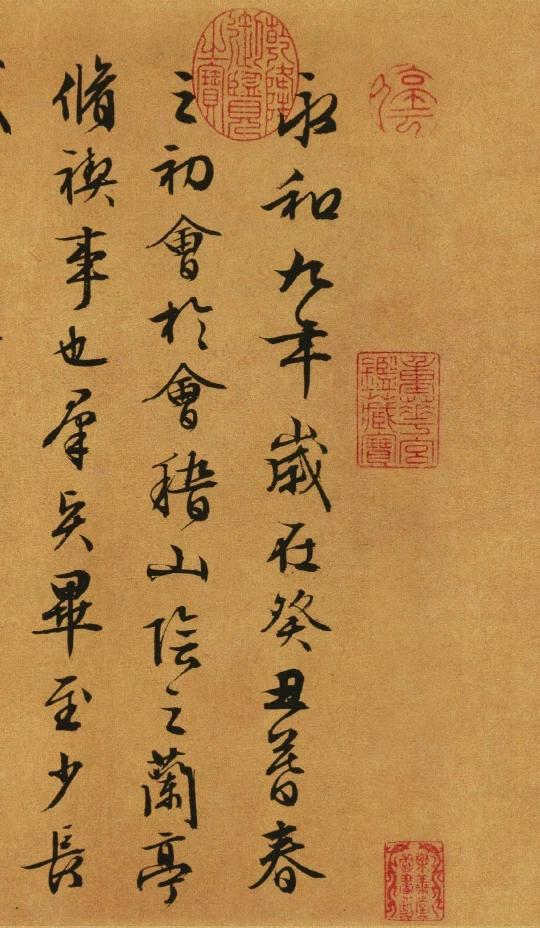 永和九年歲在癸丑暮春
之初會於會稽山陰之蘭亭
脩禊事也羣賢畢至少長
乾隆御覽之寶
重華宮鑑藏寶
樂善堂圖書記